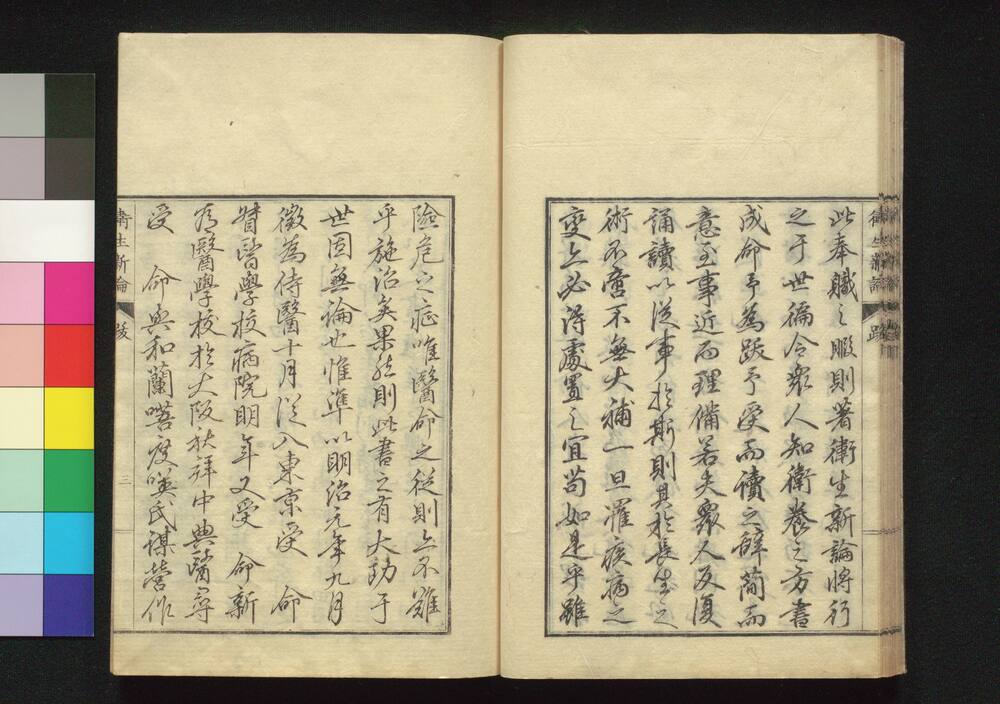 此奉職之暇則著衛生新論將行
之于世徧令衆人知衛養之方書
成命予為跋予受而讀之辭簡而
意至事近而理備若夫衆人反復
誦讀以從事於斯則其於長生之
術不啻不無大補一旦罹疾病之
變亦必得處置之宜苟如是乎雖
險危之症唯醫命之從則亦不難
乎施治矣果然則此書之有大功于
世固無論也惟準以明治元年九月
徵為侍醫十月從入東京受　命
督醫學校病院明年又受　命新
為醫學校於大阪於拜中典醫尋
受　命與和蘭噐度嘆氏謀營作
衛生新論
跋
三
衛生新論
跋